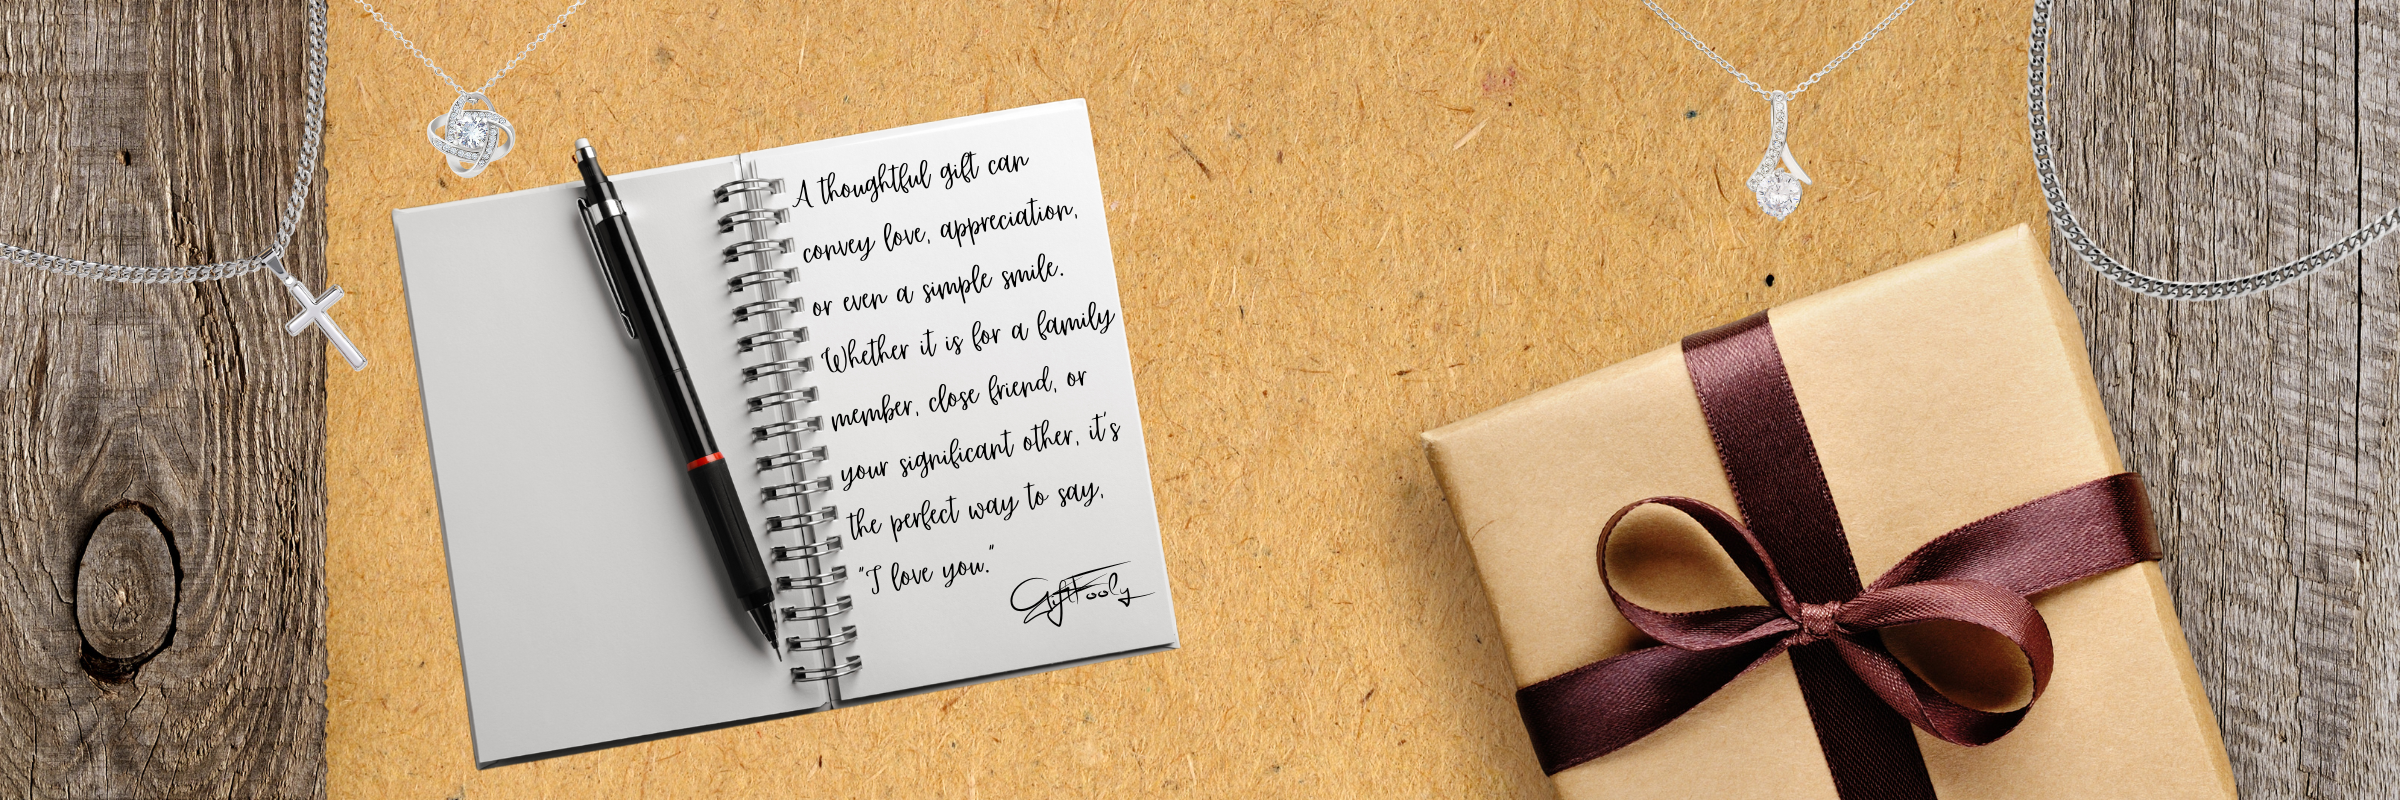 A thoughtful gift can
convey love, appreciation,
or even a simple smile.
Whether it is for a family
member, close friend, or
your significant other, it's
the perfect way to say,
"I love you."
GiftFooly